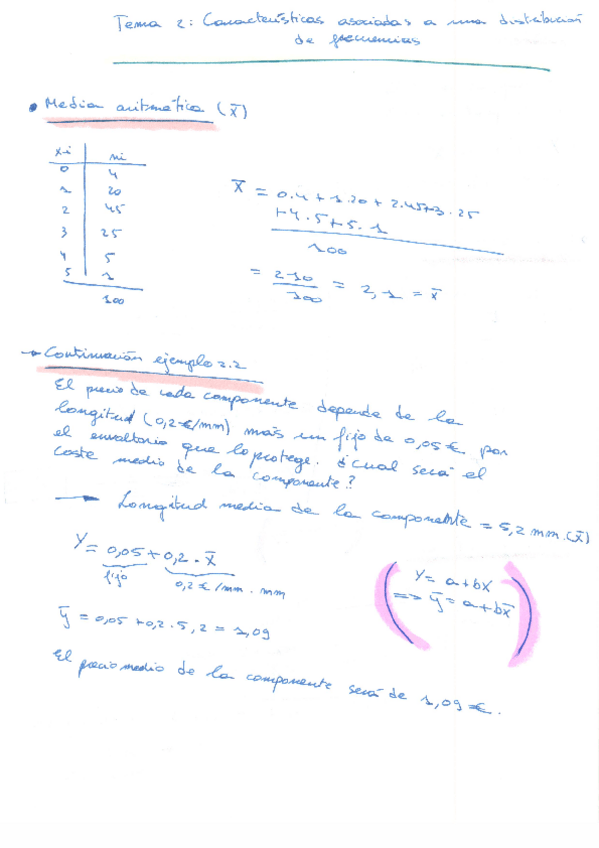 Tema 2: Características asociadas a una distribución
de frecuencias
• Media aritmética (x̄)
xi | ni
0 | 4
1 | 20
2 | 45
3 | 25
4 | 5
5 | 1
100
x̄ = 0.4 + 1.20 + 2.45 + 3.25
+ 4.5 + 5.1
100
= 210/100 = 2,1 = x̄
→ Continuación ejemplo 2.2
El precio de cada componente depende de la
longitud (0,2 €/mm) más un fijo de 0,05 € por
el envoltorio que lo protege. ¿Cual será el
coste medio de la componente?
→ Longitud media de la componente = 5,2 mm. (x̄)
Y = 0,05 + 0,2 · x̄
fijo 0,2 €/mm · mm
(Y = a + bX
=> ȳ = a + bx̄)
ȳ = 0,05 + 0,2 · 5,2 = 1,09
El precio medio de la componente será de 1,09 €.